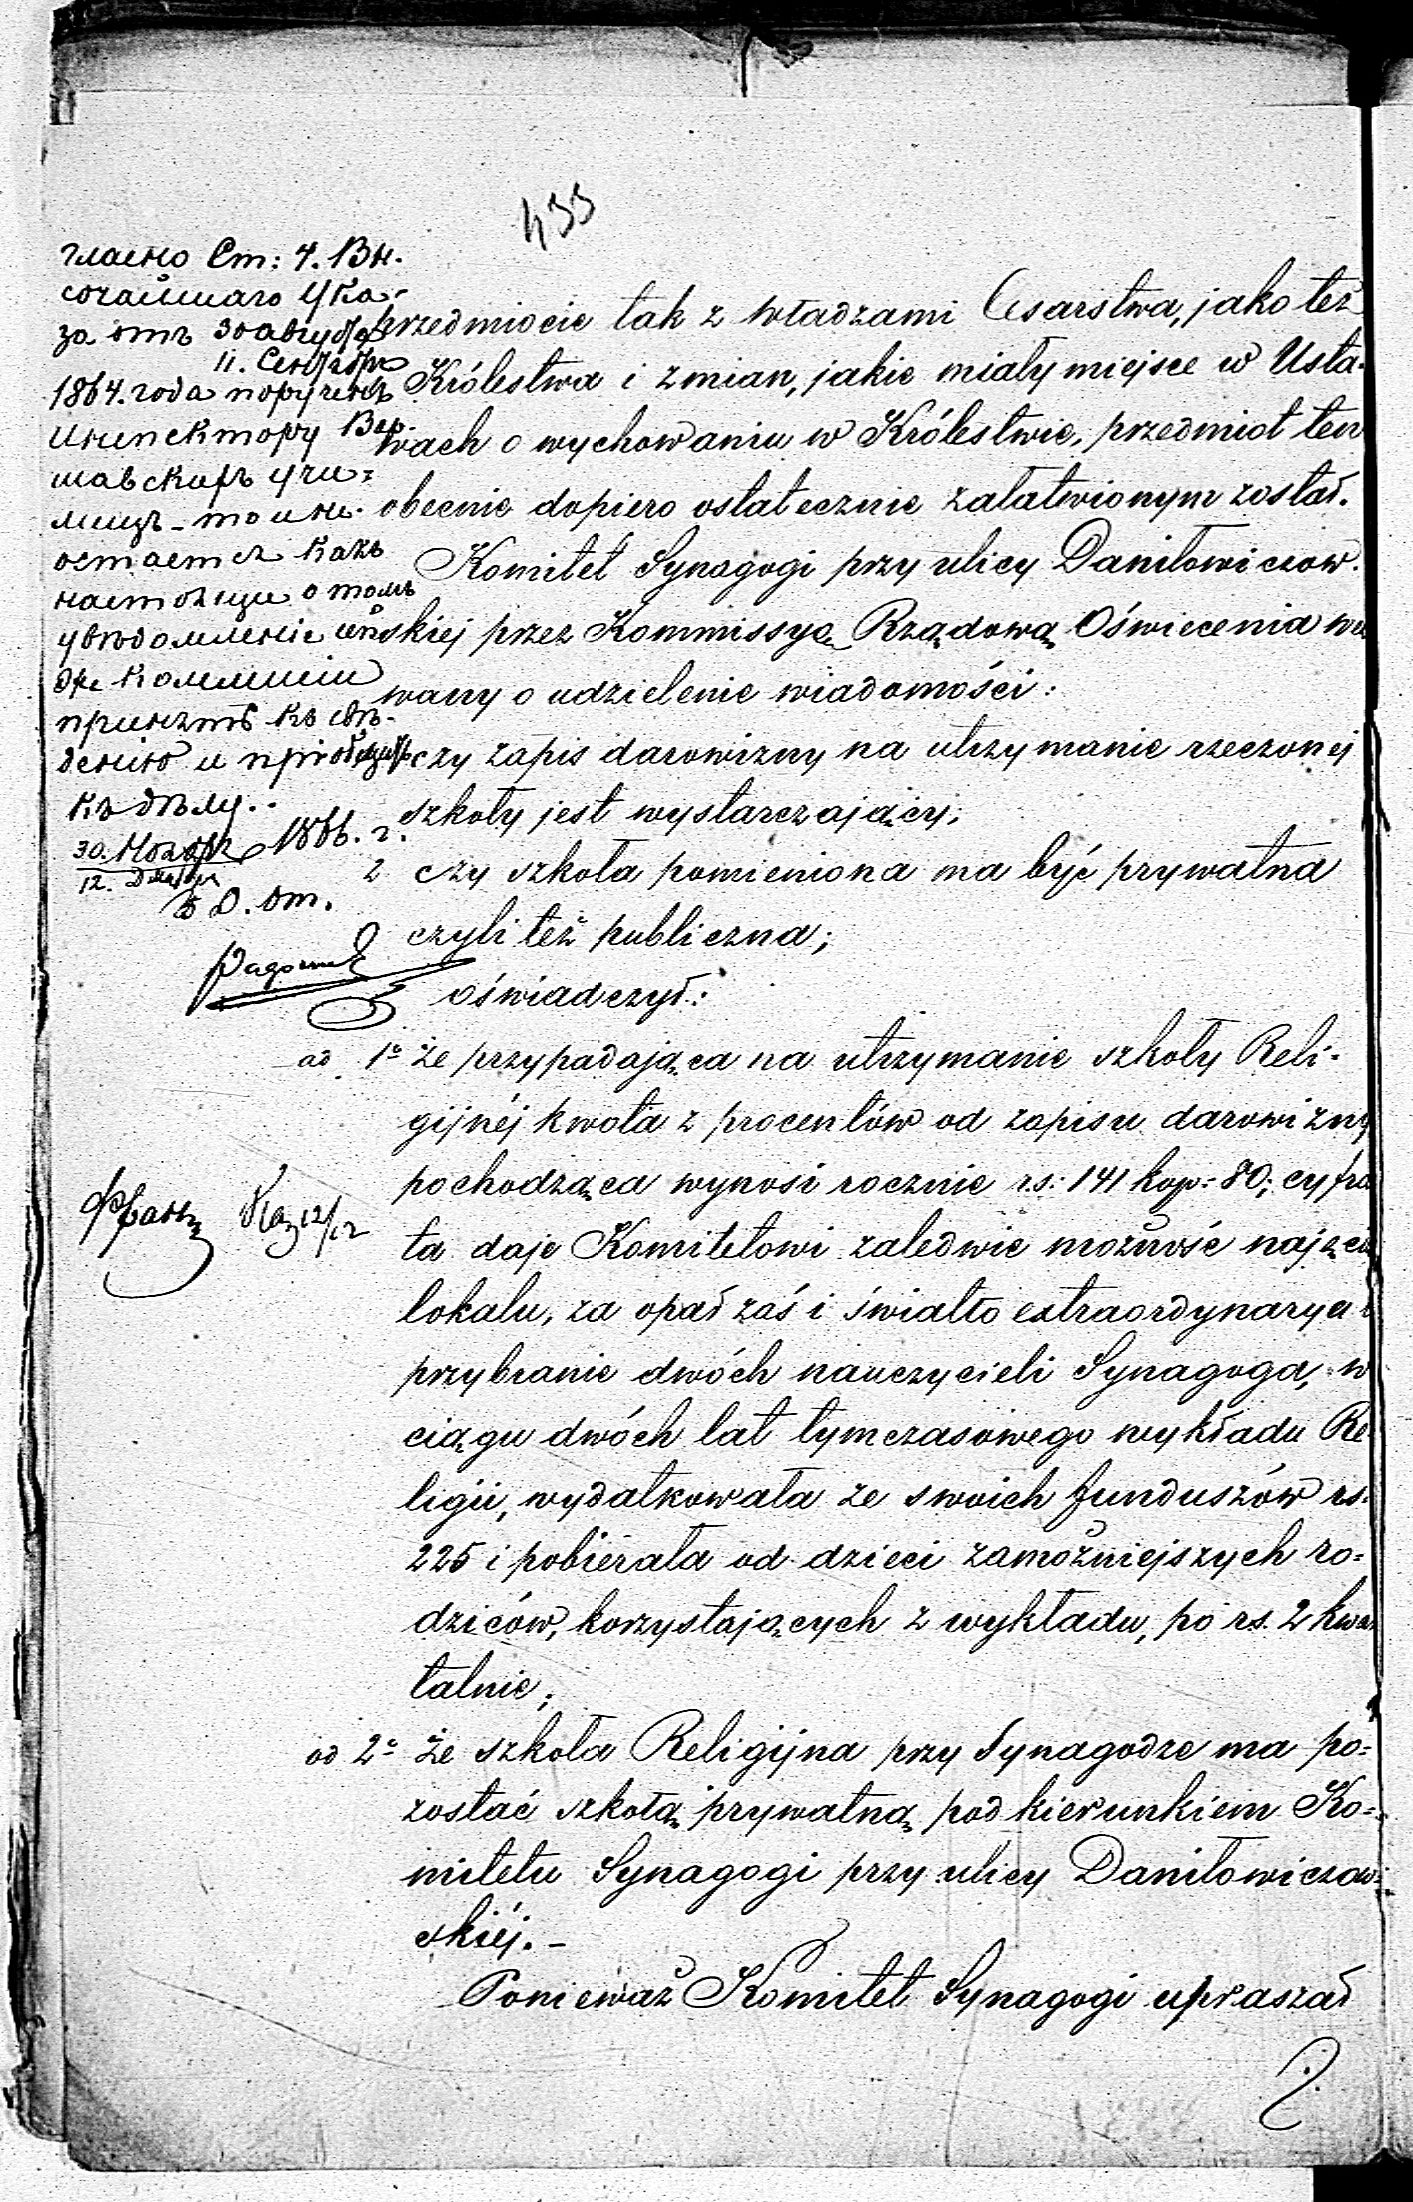 433
гласно Ст: 4. Вы-
сочайшаго Ука-
за отъ 30 августа
11. Сентября
1864. года поручена
Инспектору Вар-
шавскихъ учи-
лищъ - то и не
остается какъ
настоящее о томъ
увѣдомленіе
Коммисіи
принять къ свѣ-
денію и пріобщить
къ дѣлу.
30. Ноября 1866. г.
12. Декабря
Д. От.
12/12
przedmiocie tak z władzami Cesarstwa, jako też
Królestwa i zmian, jakie miały miejsce w Usta-
wach o wychowaniu w Królestwie, przedmiot ten
obecnie dopiero ostatecznie załatwionym został.
Komitet Synagogi przy ulicy Daniłowiczow-
skiej przez Kommissyą Rządową Oświecenia wez
wany o udzielenie wiadomości:
czy zapis darowizny na utrzymanie rzeczonej
szkoły jest wystarczający;
2 czy szkoła pomieniona ma być prywatna
czyli też publiczna;
oświadczył:
ad 1° że przypadająca na utrzymanie szkoły Reli-
gijnéj kwota z procentów od zapisu darowizny
pochodząca wynosi rocznie rs: 141 kop: 80; cyfra
ta daje Komitetowi zaledwie możność najęcia
lokalu, za opał zaś i światło extraordynaryą i
przybranie dwóch nauczycieli Synagoga, w
ciągu dwóch lat tymczasowego wykładu Re-
ligii, wydatkowała ze swoich funduszów rs.
225 i pobierała od dzieci zamożniejszych ro-
dziców, korzystających z wykładu, po rs. 2 kwar
talnie;
ad 2° że szkoła Religijna przy Synagodze ma po-
zostać szkołą prywatną pod kierunkiem Ko-
mitetu Synagogi przy ulicy Daniłowiczow-
skiéj. –
Ponieważ Komitet Synagogi upraszał